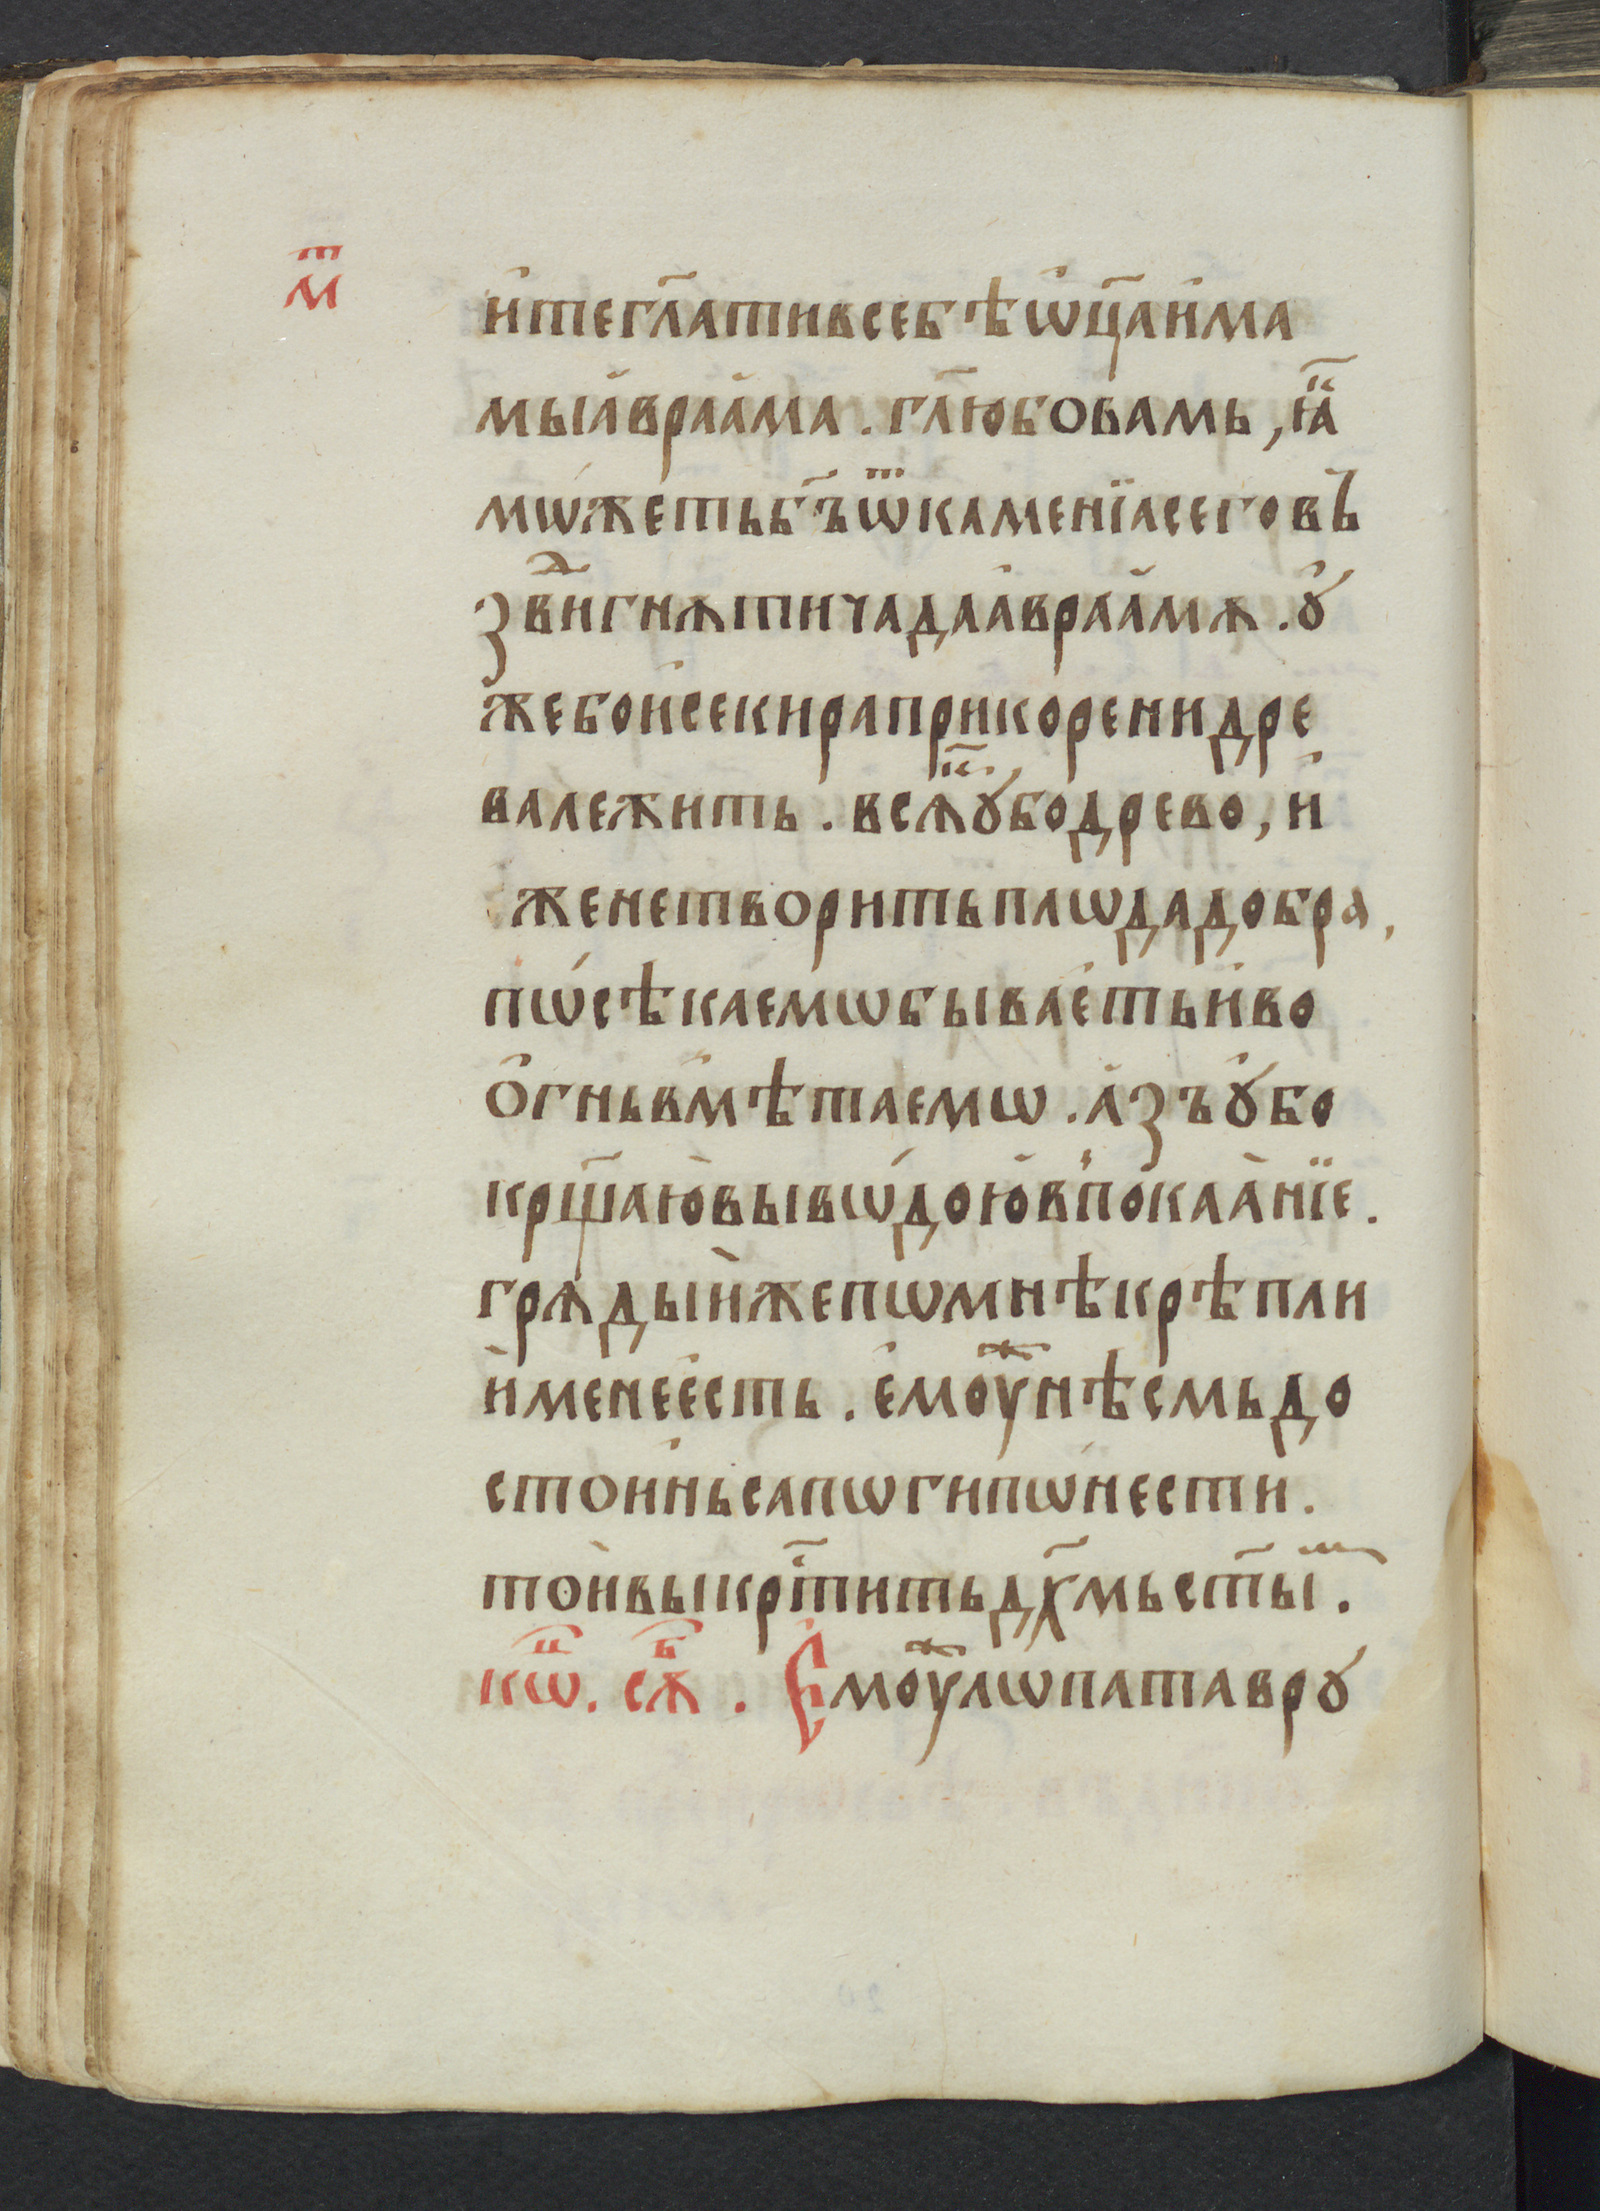 м҃ⷮ
и҆тегл҃ативсебѣѡ҆ц҃аи҆ма
мыа҆враа҆ма. гл҃юбовамь, ꙗ҆ⷦ҇
мѡ́жетьб҃ъѿкаменїасеговъ
звⷣ҇игнѫтичадаа҆враа҆мѫ. ꙋ҆
жебои҆секираприкоренидре
валежить. всѧⷦ҇ꙋ҆бодрево, и҆
женетворитьплѡдадобра,
пѡ́сѣкаемѡбывае҆тьи҆во
о҆гньвмѣтаемѡ. а҆зъꙋ҆бо
крщ҃аю̀вывѡ́доюв̾пока́а̀нїе.
грѧдыи҆жепѡмнѣкрѣпли
и҆менее҆сть. е҆моуⷤ҇нѣсмьдо
стои҆ньсапѡгипѡнести.
тои҆выкрⷭ҇титьдх҃мьст҃ыⷨ.
кѡⷩ҇. сꙋⷠ҇. Е҆моуⷤ҇лѡпатаврꙋ